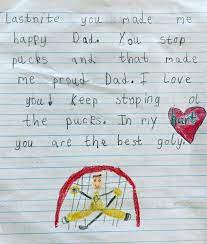 Lastnite you made me
happy Dad. You stop
pucks and that made
me proud Dad. I love
you! Keep stoping ol
the pucks. In my hart
you are the best goly.